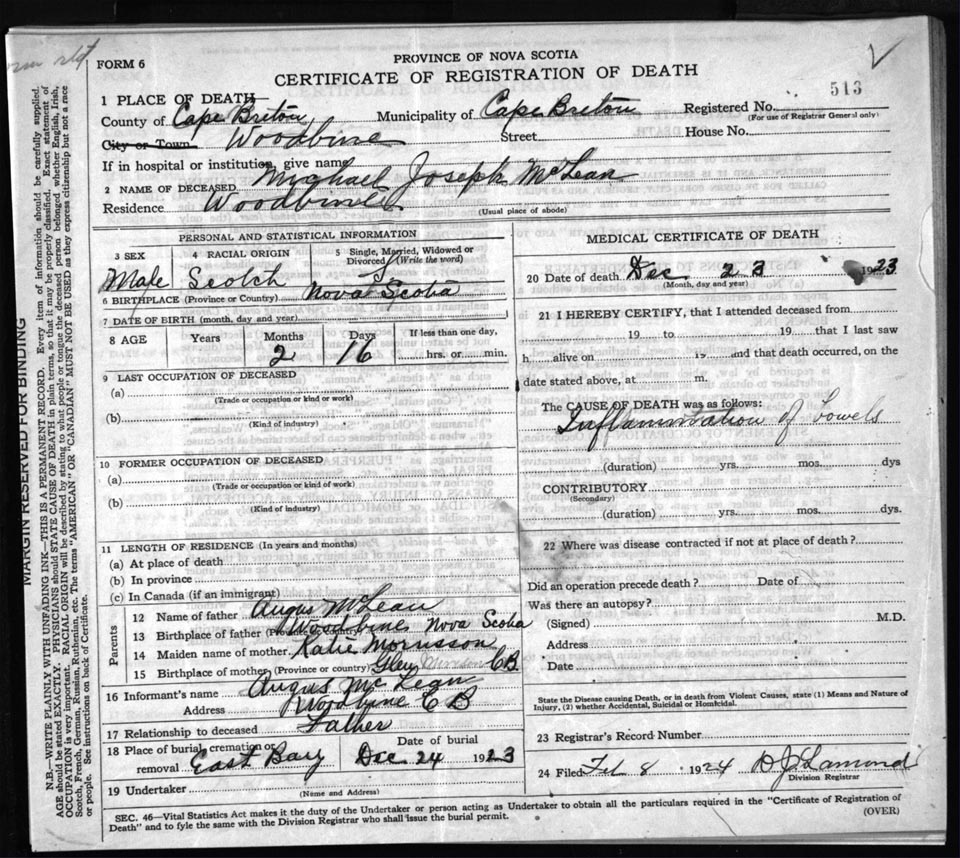 PROVINCE OF NOVA SCOTIA
FORM 6
CERTIFICATE OF REGISTRATION OF DEATH
513
1 PLACE OF DEATH
County of Cape Breton Municipality of Cape Breton Registered No.
(For use of Registrar General only)
City or Town Woodbine Street House No.
If in hospital or institution, give name
2 NAME OF DECEASED Michael Joseph McLean
Residence Woodbine
(Usual place of abode)
PERSONAL AND STATISTICAL INFORMATION
3 SEX 4 RACIAL ORIGIN 5 Single, Married, Widowed or Divorced (Write the word)
Male Scotch S
6 BIRTHPLACE (Province or Country) Nova Scotia
7 DATE OF BIRTH (month, day and year)
8 AGE Years Months Days If less than one day,
2 16 hrs. or min.
9 LAST OCCUPATION OF DECEASED
(a)
(Trade or occupation or kind or work)
(b)
(Kind of industry)
10 FORMER OCCUPATION OF DECEASED
(a)
(Trade or occupation or kind of work)
(b)
(Kind of industry)
11 LENGTH OF RESIDENCE (In years and months)
(a) At place of death
(b) In province
(c) In Canada (if an immigrant)
Parents
12 Name of father Angus McLean
13 Birthplace of father (Province or Country) Woodbine Nova Scotia
14 Maiden name of mother Katie Morrisson
15 Birthplace of mother (Province or country) Glen Morrison CB
16 Informant's name Angus McLean
Address Woodbine C B
17 Relationship to deceased Father
18 Place of burial, cremation or Date of burial
removal East Bay Dec 24 1923
19 Undertaker
(Name and Address)
MEDICAL CERTIFICATE OF DEATH
20 Date of death Dec 23 1923
(Month, day and year)
21 I HEREBY CERTIFY, that I attended deceased from
19 to 19 that I last saw
h alive on 19 and that death occurred, on the
date stated above, at m.
The CAUSE OF DEATH was as follows:
Inflammation of bowels
(duration) yrs. mos. dys
CONTRIBUTORY
(Secondary)
(duration) yrs. mos. dys.
22 Where was disease contracted if not at place of death?
Did an operation precede death? Date of
Was there an autopsy?
(Signed) M.D.
Address
Date
State the Disease causing Death, or in death from Violent Causes, state (1) Means and Nature of
Injury, (2) whether Accidental, Suicidal or Homicidal.
23 Registrar's Record Number
24 Filed Feb 8 1924 D J Lamond
Division Registrar
SEC. 46—Vital Statistics Act makes it the duty of the Undertaker or person acting as Undertaker to obtain all the particulars required in the "Certificate of Registration of
Death" and to fyle the same with the Division Registrar who shall issue the burial permit.
(OVER)
MARGIN RESERVED FOR BINDING
N.B.—WRITE PLAINLY WITH UNFADING INK—THIS IS A PERMANENT RECORD. Every item of information should be carefully supplied.
AGE should be stated EXACTLY. PHYSICIANS should STATE CAUSE OF DEATH in plain terms, so that it may be properly classified. Exact statement of
OCCUPATION is very important. RACIAL ORIGIN will be described by stating to what people or tongue the deceased person belonged whether English, Irish,
Scotch, French, German, Russian, Ruthenian, etc. The terms "AMERICAN" OR "CANADIAN" MUST NOT BE USED as they express citizenship but not a race
or people. See instructions on back of Certificate.